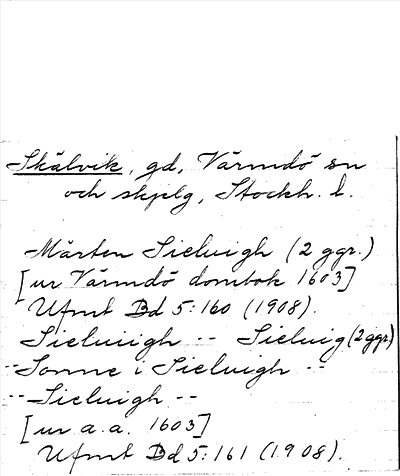 Skälvik, gd, Värmdö sn
och skplg, Stockh. l.
Mårten Sieluigh (2 ggr.)
[ur Värmdö dombok 1603]
Ufmt Bd 5:160 (1908).
Sieluiigh -- Sieluig (2 ggr)
-- Sonne i Sieluigh --
-- Sieluigh --
[ur a.a. 1603]
Ufmt Bd 5:161 (1908).